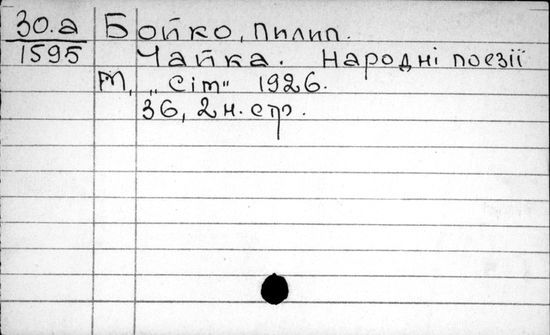 30.а Бойко, Пилип.
1595 Чайка. Народні поезії
М, „Сіт" 1926.
36, 2 н. стр.